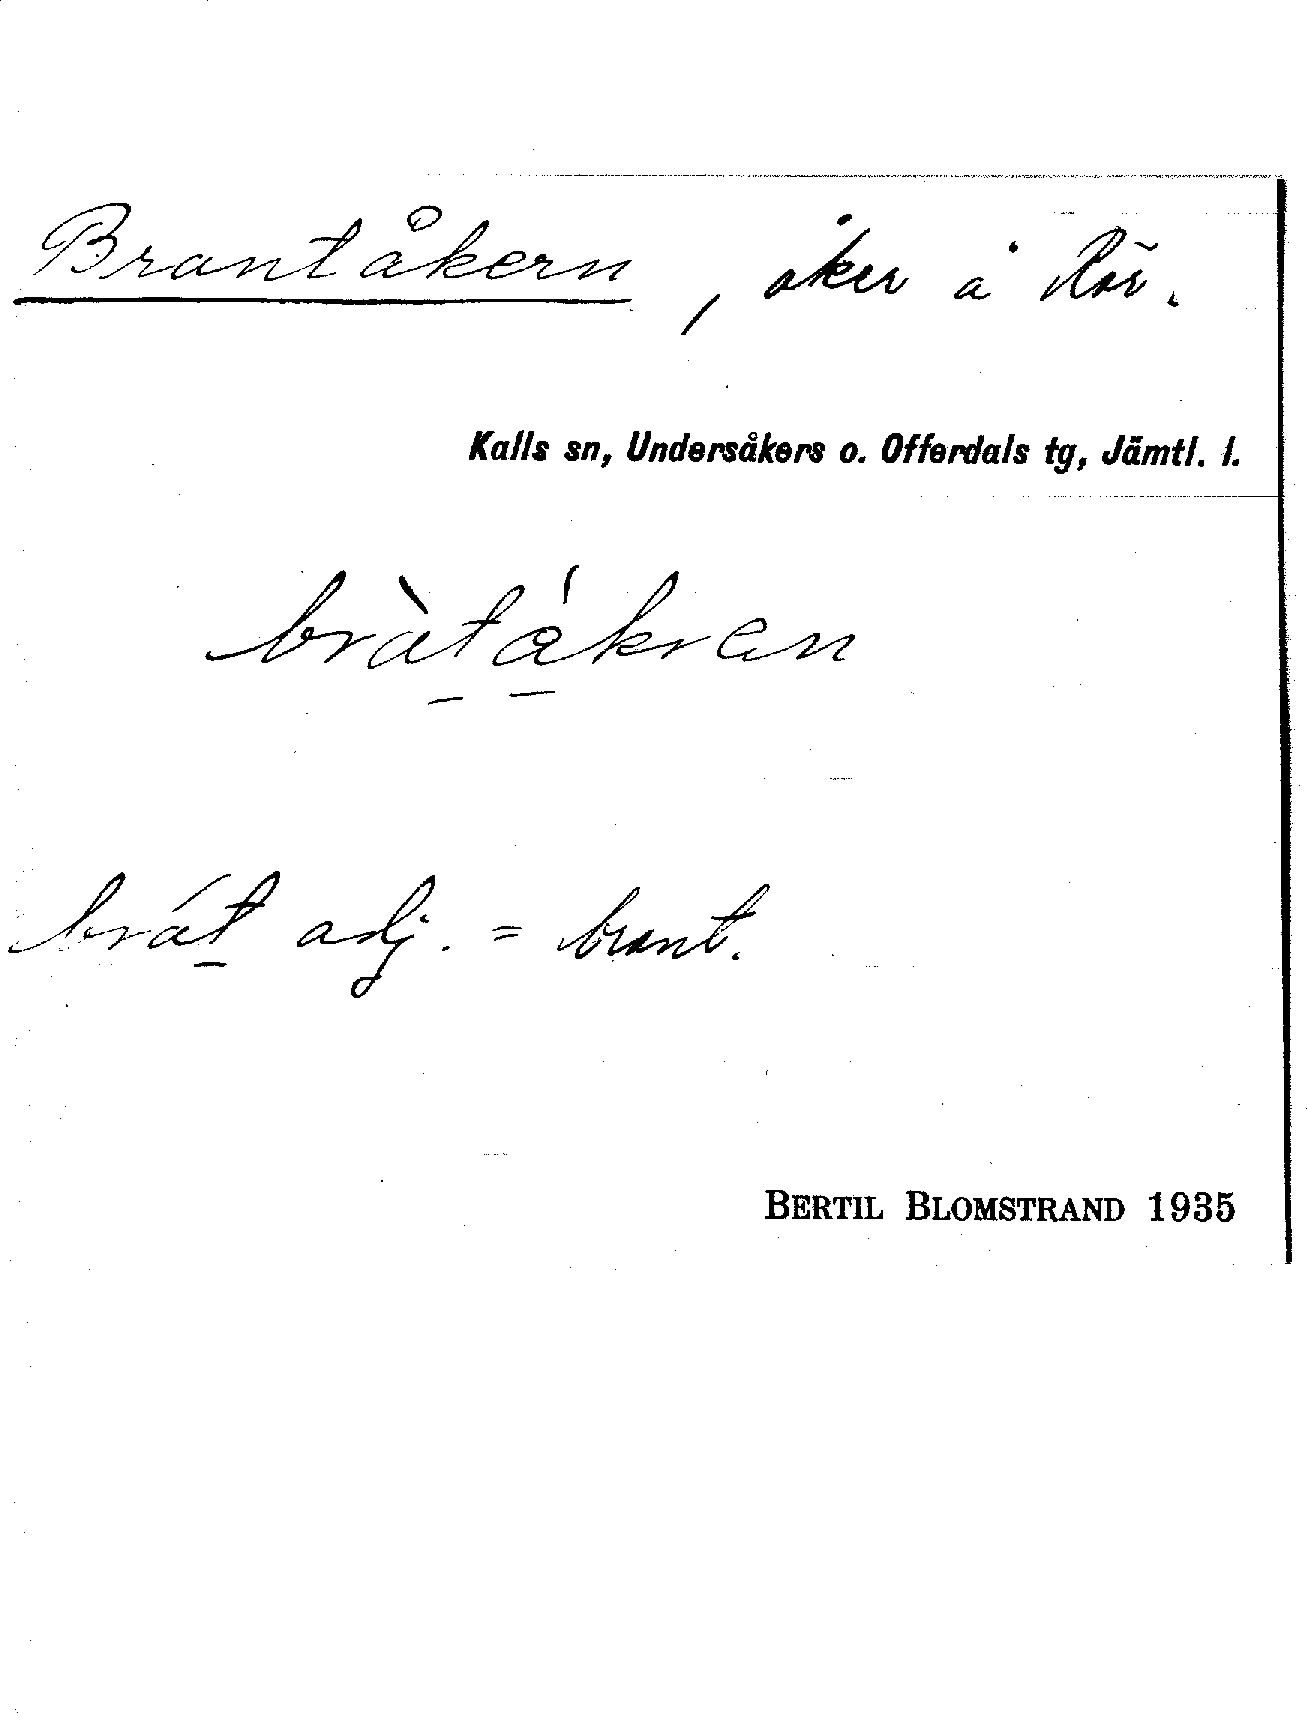 Brantåkern, åker å Rör.
Kalls sn, Undersåkers o. Offerdals tg, Jämtl. l.
bràtákren
brát adj. = brant.
BERTIL BLOMSTRAND 1935